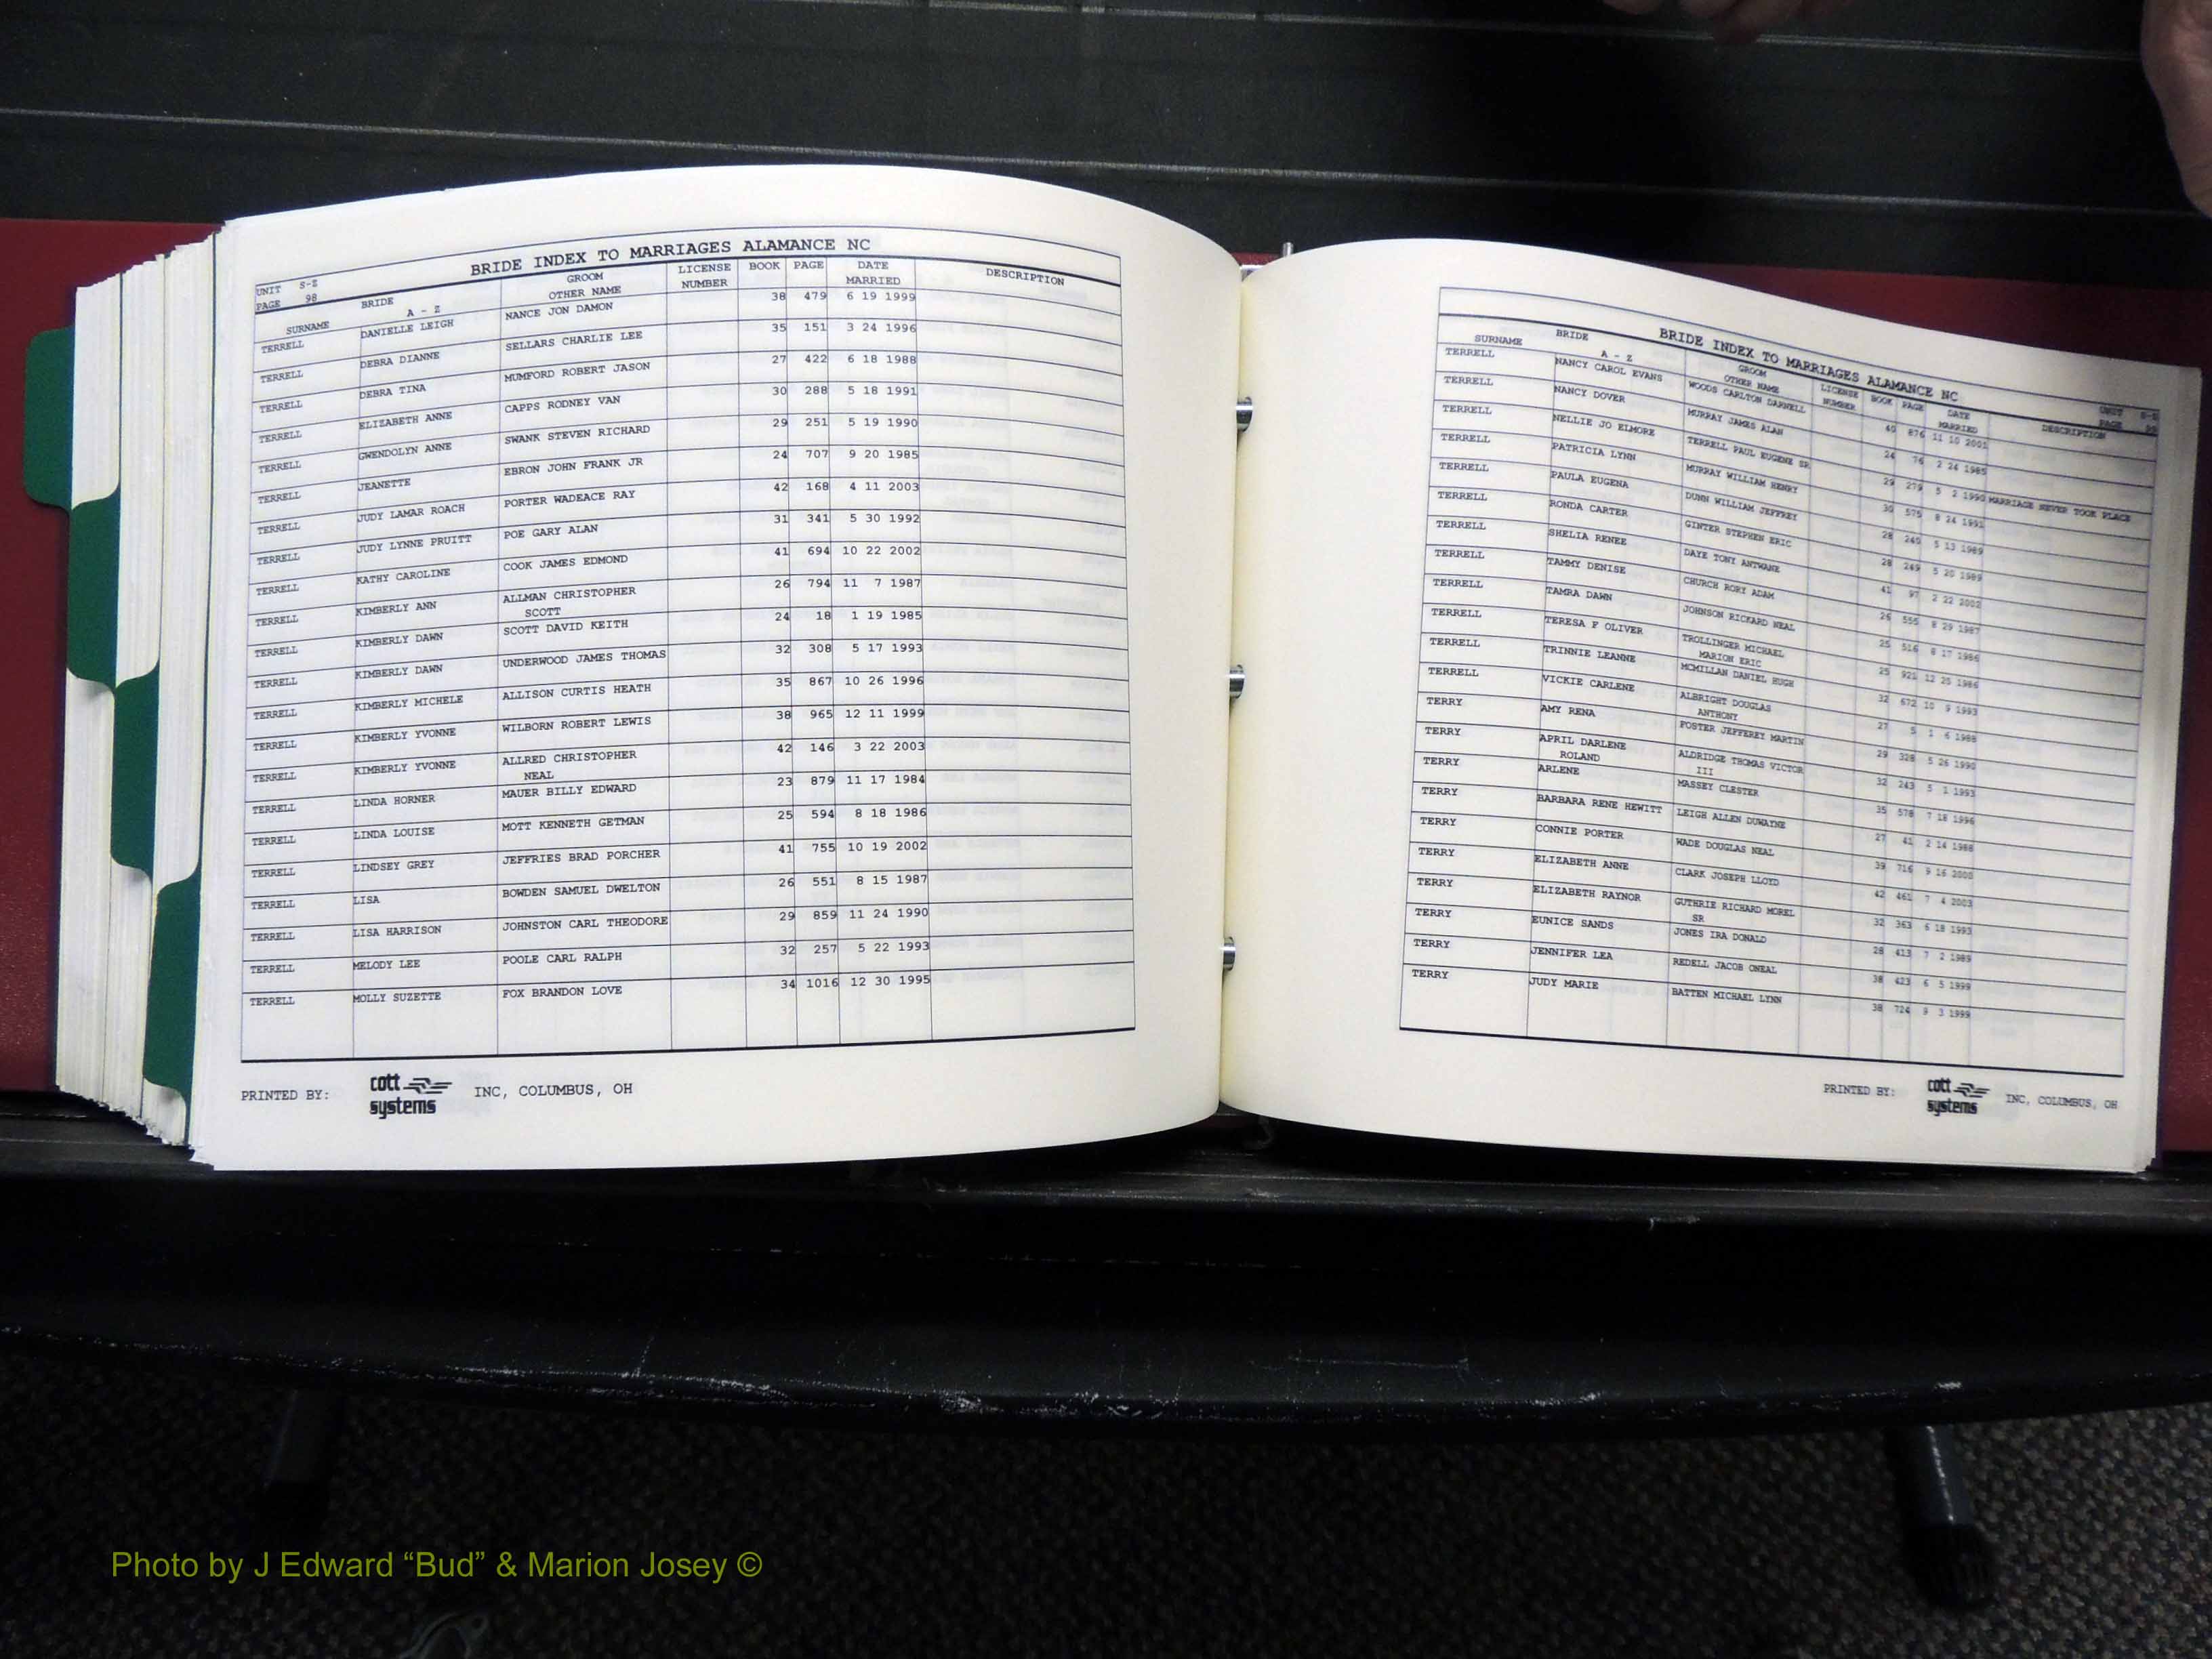 BRIDE INDEX TO MARRIAGES ALAMANCE NC
UNIT S-Z
PAGE 98
SURNAME BRIDE A - Z GROOM OTHER NAME LICENSE NUMBER BOOK PAGE DATE MARRIED DESCRIPTION
TERRELL DANIELLE LEIGH NANCE JON DAMON 38 479 6 19 1999
TERRELL DEBRA DIANNE SELLARS CHARLIE LEE 35 151 3 24 1996
TERRELL DEBRA TINA MUMFORD ROBERT JASON 27 422 6 18 1988
TERRELL ELIZABETH ANNE CAPPS RODNEY VAN 30 288 5 18 1991
TERRELL GWENDOLYN ANNE SWANK STEVEN RICHARD 29 251 5 19 1990
TERRELL JEANETTE EBRON JOHN FRANK JR 24 707 9 20 1985
TERRELL JUDY LAMAR ROACH PORTER WADEACE RAY 42 168 4 11 2003
TERRELL JUDY LYNNE PRUITT POE GARY ALAN 31 341 5 30 1992
TERRELL KATHY CAROLINE COOK JAMES EDMOND 41 694 10 22 2002
TERRELL KIMBERLY ANN ALLMAN CHRISTOPHER 26 794 11 7 1987
SCOTT
TERRELL KIMBERLY DAWN SCOTT DAVID KEITH 24 18 1 19 1985
TERRELL KIMBERLY DAWN UNDERWOOD JAMES THOMAS 32 308 5 17 1993
TERRELL KIMBERLY MICHELE ALLISON CURTIS HEATH 35 867 10 26 1996
TERRELL KIMBERLY YVONNE WILBORN ROBERT LEWIS 38 965 12 11 1999
TERRELL KIMBERLY YVONNE ALLRED CHRISTOPHER 42 146 3 22 2003
NEAL
TERRELL LINDA HORNER MAUER BILLY EDWARD 23 879 11 17 1984
TERRELL LINDA LOUISE MOTT KENNETH GETMAN 25 594 8 18 1986
TERRELL LINDSEY GREY JEFFRIES BRAD PORCHER 41 755 10 19 2002
TERRELL LISA BOWDEN SAMUEL DWELTON 26 551 8 15 1987
TERRELL LISA HARRISON JOHNSTON CARL THEODORE 29 859 11 24 1990
TERRELL MELODY LEE POOLE CARL RALPH 32 257 5 22 1993
TERRELL MOLLY SUZETTE FOX BRANDON LOVE 34 1016 12 30 1995
PRINTED BY: cott systems INC, COLUMBUS, OH
BRIDE INDEX TO MARRIAGES ALAMANCE NC
UNIT S-Z
PAGE 99
SURNAME BRIDE A - Z GROOM OTHER NAME LICENSE NUMBER BOOK PAGE DATE MARRIED DESCRIPTION
TERRELL NANCY CAROL EVANS WOODS CARLTON DARNELL 40 876 11 10 2001
TERRELL NANCY DOVER MURRAY JAMES ALAN 24 76 2 24 1985
TERRELL NELLIE JO ELMORE TERRELL PAUL EUGENE SR 29 279 5 2 1990 MARRIAGE NEVER TOOK PLACE
TERRELL PATRICIA LYNN MURRAY WILLIAM HENRY 30 575 8 24 1991
TERRELL PAULA EUGENA DUNN WILLIAM JEFFREY 28 240 5 13 1989
TERRELL RONDA CARTER GINTER STEPHEN ERIC 28 249 5 20 1989
TERRELL SHELIA RENEE DAYE TONY ANTWANE 41 97 2 22 2002
TERRELL TAMMY DENISE CHURCH RORY ADAM 26 555 8 29 1987
TERRELL TAMRA DAWN JOHNSON RICKARD NEAL 25 516 8 17 1986
TERRELL TERESA F OLIVER TROLLINGER MICHAEL 25 921 12 25 1986
MARION ERIC
TERRELL TRINNIE LEANNE MCMILLAN DANIEL HUGH 32 672 10 9 1993
TERRELL VICKIE CARLENE ALBRIGHT DOUGLAS 27 5 1 6 1988
ANTHONY
TERRY AMY RENA FOSTER JEFFEREY MARTIN 29 328 5 26 1990
TERRY APRIL DARLENE ALDRIDGE THOMAS VICTOR 32 243 5 1 1993
ROLAND III
TERRY ARLENE MASSEY CLESTER 35 578 7 18 1996
TERRY BARBARA RENE HEWITT LEIGH ALLEN DUWAYNE 27 41 2 14 1988
TERRY CONNIE PORTER WADE DOUGLAS NEAL 39 716 9 16 2000
TERRY ELIZABETH ANNE CLARK JOSEPH LLOYD 42 461 7 4 2003
TERRY ELIZABETH RAYNOR GUTHRIE RICHARD MOREL 32 363 6 18 1993
SR
TERRY EUNICE SANDS JONES IRA DONALD 28 413 7 2 1989
TERRY JENNIFER LEA REDELL JACOB ONEAL 38 423 6 5 1999
TERRY JUDY MARIE BATTEN MICHAEL LYNN 38 724 9 3 1999
PRINTED BY: cott systems INC, COLUMBUS, OH
Photo by J Edward “Bud” & Marion Josey ©